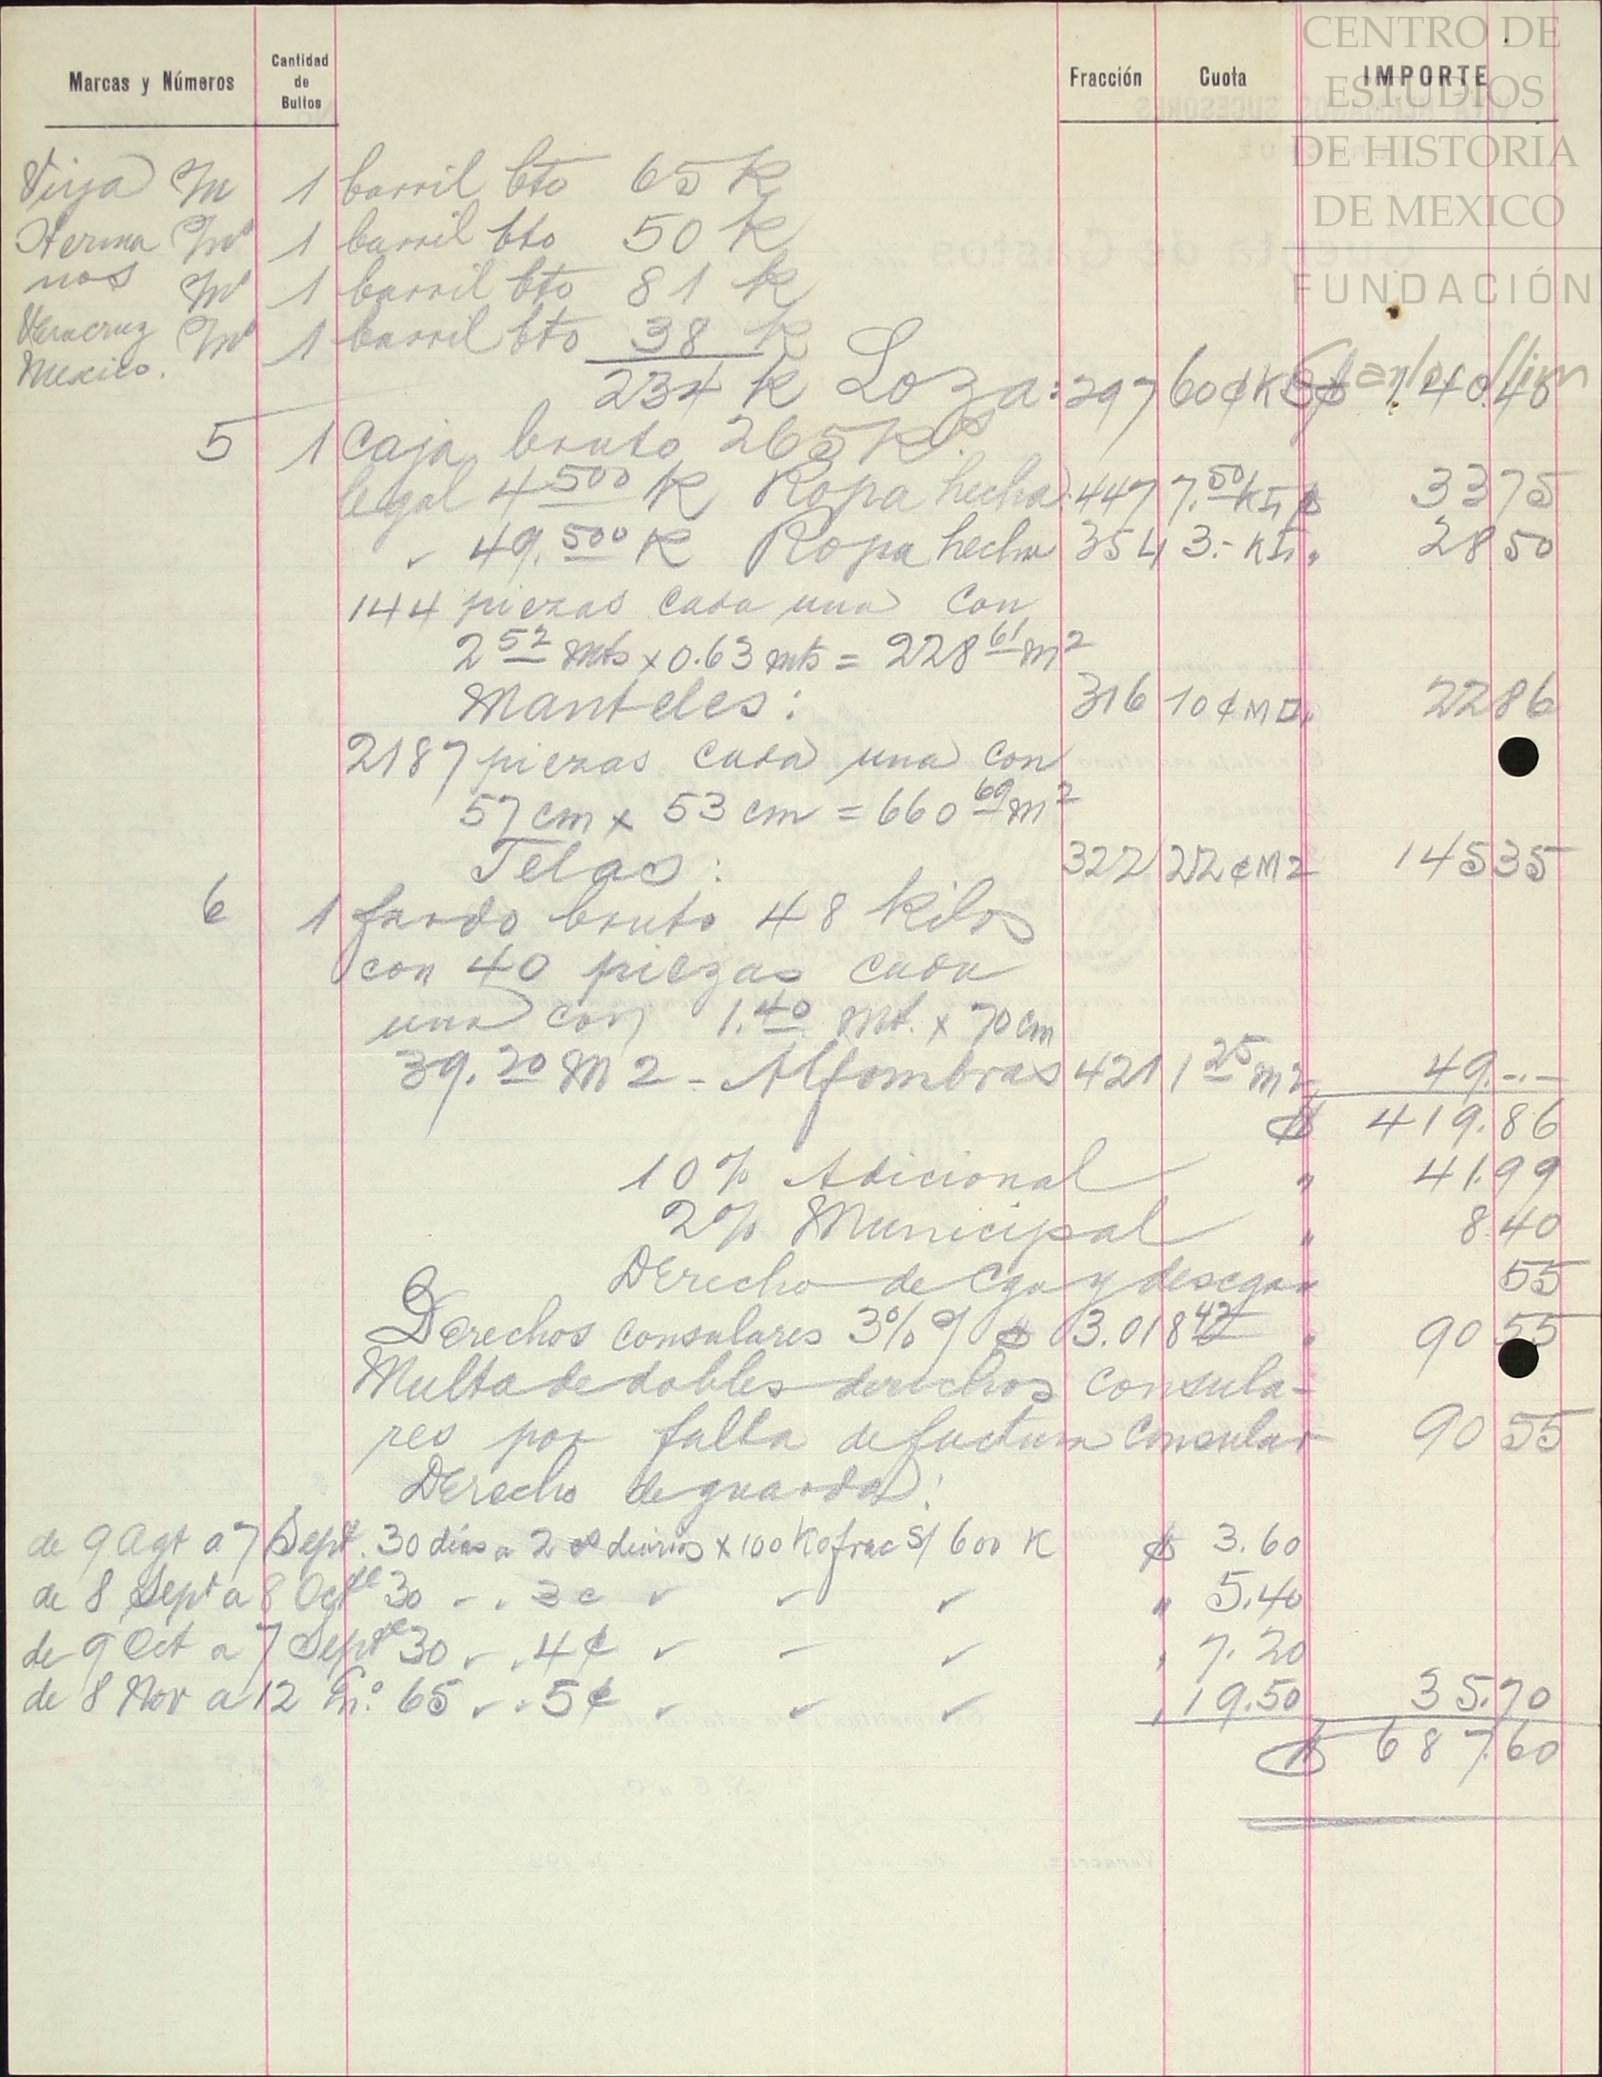 CENTRO DE
ESTUDIOS
DE HISTORIA
DE MEXICO
FUNDACIÓN
Carlos Slim
Marcas y Números Cantidad de Bultos Fracción Cuota IMPORTE
M 1 barril bto 65 K
Herma M 1 barril bto 50 K
nos M 1 barril bto 81 K
Veracruz M 1 barril bto 38 K
Mexico.
234 K Loza: 297 60¢ KB $ 140.40
5 1 caja bruto 265 Ks.
legal 4 500 K Ropa hecha. 447 7.50 KL $ 33 75
" 49.500 K Ropa hecha 354 3.- KL " 28 50
144 piezas cada una con
2 52 mts x 0.63 mts = 228 61 m2
Manteles: 316 10 ¢ M□ " 22 86
2187 piezas cada una con
57 cm x 53 cm = 660 69 m2
Telas: 322 22 ¢ M2 145 35
6 1 fardo bruto 48 kilos
con 40 piezas cada
una con 1.40 Mt. x 70 cm
39.20 M2 - Alfombras 421 1 25 m2 49.--
$ 419.86
10% Adicional " 41.99
2% Municipal " 8.40
Derecho de cga y descga " 55
Derechos consulares 3% s/ $ 3.018 42 " 90 55
Multa de dobles derechos consula-
res por falta de factura consular 90 55
Derecho de guarda:
de 9 Agt a 7 Sept. 30 dias a 2 ¢ diarios x 100 K o frac s/ 600 K $ 3.60
de 8 Sept a 8 Octe 30 " " 3 c " " " " 5.40
de 9 Oct a 7 Septe 30 " " 4 ¢ " " " " 7.20
de 8 Nov a 12 En.o 65 " " 5 ¢ " " " " 19.50 35.70
$ 687.60